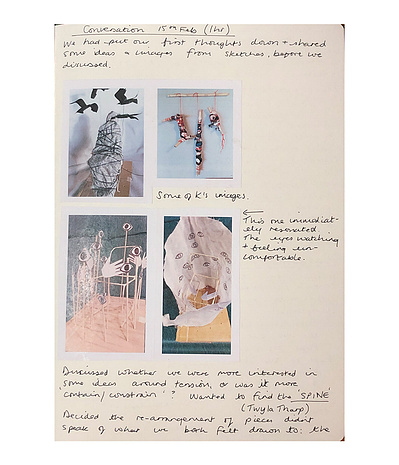 Conversation 15th Feb (1hr)
We had put our first thoughts down + shared
some ideas + images from sketches, before we
discussed.
Some of K's images.
←
This one immediat-
ely resonated.
The eyes watching
+ feeling un-
comfortable.
Discussed whether we were more interested in
some ideas around tension, or was it more
contain/constrain'? Wanted to find the 'SPINE'
(Twyla Tharp)
Decided the re-arrangement of pieces didn't
speak of what we both felt drawn to: the